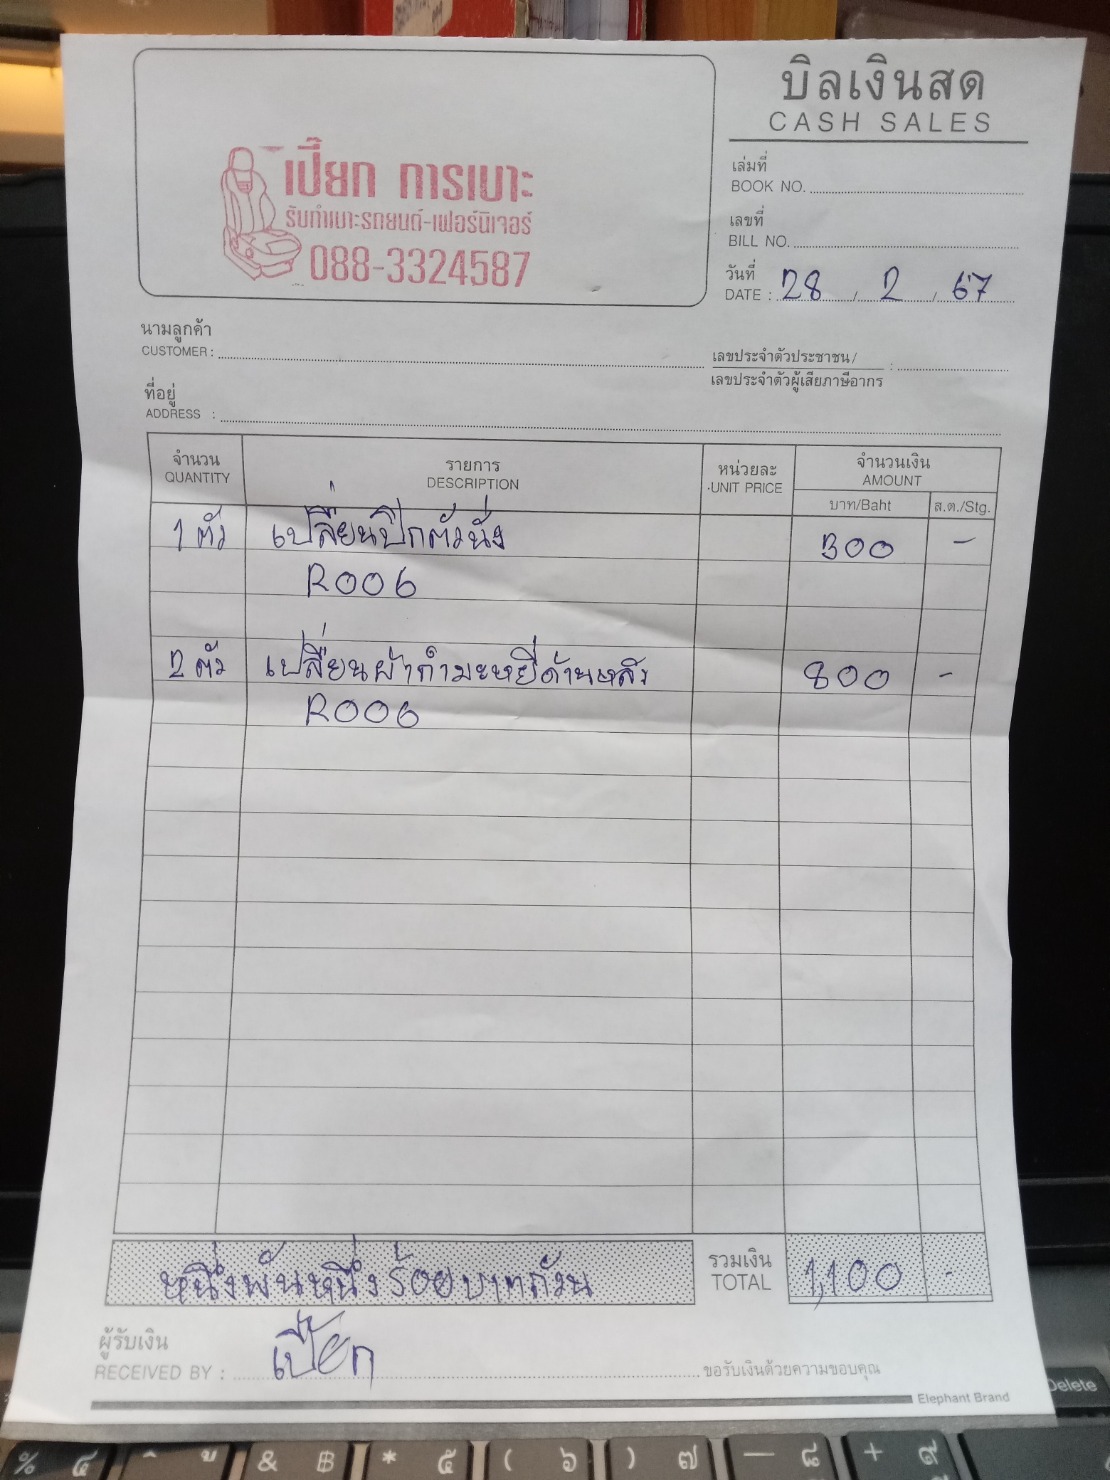 บิลเงินสด
CASH SALES
เปี๊ยก การเบาะ
รับทำเบาะรถยนต์-เฟอร์นิเจอร์
088-3324587
เล่มที่
BOOK NO.
เลขที่
BILL NO.
วันที่
DATE : 28 / 2 / 67
นามลูกค้า
CUSTOMER :
เลขประจำตัวประชาชน /
เลขประจำตัวผู้เสียภาษีอากร :
ที่อยู่
ADDRESS :
จำนวน รายการ หน่วยละ จำนวนเงิน
QUANTITY DESCRIPTION UNIT PRICE AMOUNT
บาท/Baht ส.ต./Stg.
1 ตัว เปลี่ยนปีกตัวนั่ง 300 -
R006
2 ตัว เปลี่ยนผ้ากำมะหยี่ด้านหลัง 800 -
R006
หนึ่งพันหนึ่งร้อยบาทถ้วน รวมเงิน 1,100 -
TOTAL
ผู้รับเงิน
RECEIVED BY : เปี๊ยก ขอรับเงินด้วยความขอบคุณ
Elephant Brand
Delete
% ๔ ^ ู & ฿ * ๕ ( ๖ ) ๗ — ๘ + ๙